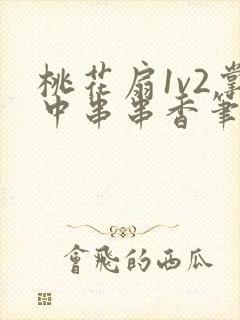 桃花扇1v2掌
中串串香笔
會飛的西瓜